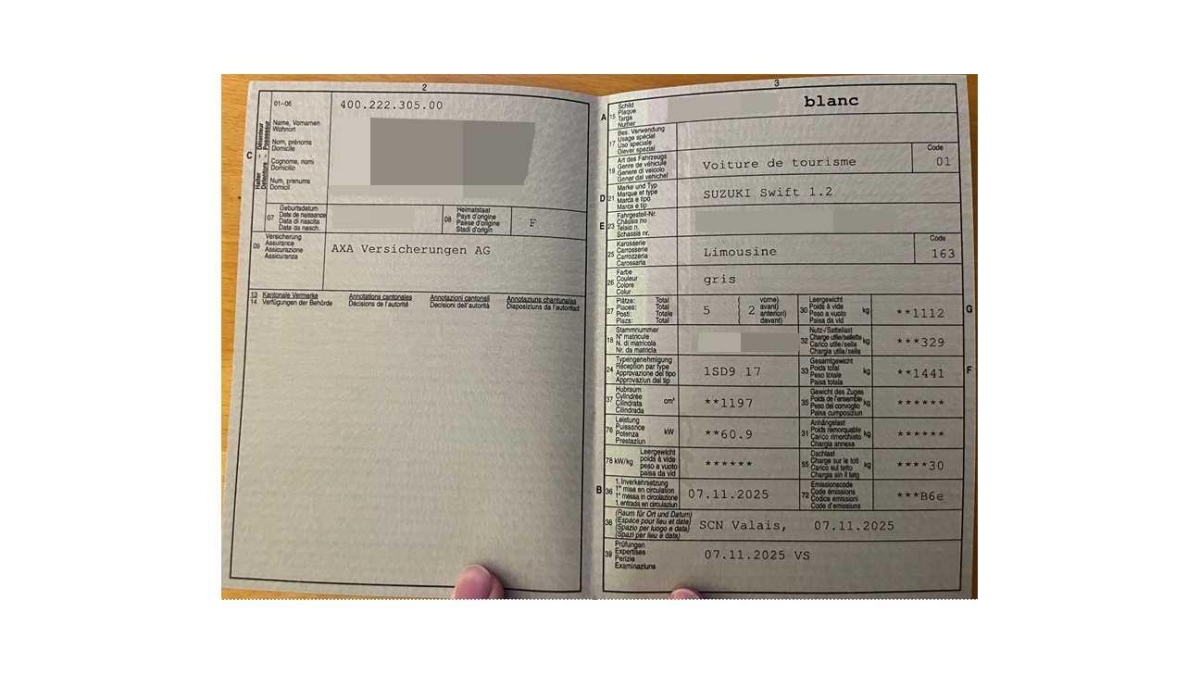 2
01-06
400.222.305.00
C
Halter Détenteur
Detentore Possessur
Name, Vornamen
Wohnort
Nom, prénoms
Domicile
Cognome, nomi
Domicilio
Num, prenums
Domicil
07
Geburtsdatum
Date de naissance
Data di nascita
Data da nasch.
08
Heimatstaat
Pays d'origine
Paese d'origine
Stadi d'origin
F
09
Versicherung
Assurance
Assicurazione
Assicuranza
AXA Versicherungen AG
13 Kantonale Vermerke Annotations cantonales Annotazioni cantonali Annotaziuns chantunalas
14 Verfügungen der Behörde Décisions de l'autorité Decisioni dell'autorità Disposiziuns da l'autoritad
3
A 15
Schild
Plaque
Targa
Numer
blanc
17
Bes. Verwendung
Usage spécial
Uso speciale
Diever spezial
19
Art des Fahrzeugs
Genre de véhicule
Genere di veicolo
Gener dal vehichel
Voiture de tourisme
Code
01
D 21
Marke und Typ
Marque et type
Marca e tipo
Marca e tip
SUZUKI Swift 1.2
E 23
Fahrgestell-Nr.
Châssis no
Telaio n.
Schassis nr.
25
Karosserie
Carrosserie
Carrozzeria
Carossaria
Limousine
Code
163
26
Farbe
Couleur
Colore
Colur
gris
27
Plätze: Total
Places: Total
Posti: Totale
Plazs: Total
5
( 2
vorne)
avant)
anteriori)
davant)
30
Leergewicht
Poids à vide
Peso a vuoto
Paisa da vid
kg
**1112
G
18
Stammnummer
N° matricule
N. di matricola
Nr. da matricla
32
Nutz-/Sattellast
Charge utile/sellette
Carico utile/sella
Chargia utila/sella
kg
***329
24
Typengenehmigung
Réception par type
Approvazione del tipo
Approvaziun dal tip
1SD9 17
33
Gesamtgewicht
Poids total
Peso totale
Paisa totala
kg
**1441
F
37
Hubraum
Cylindrée
Cilindrata
Cilindrada
cm³
**1197
35
Gewicht des Zuges
Poids de l'ensemble
Peso del convoglio
Paisa cumposiziun
kg
******
76
Leistung
Puissance
Potenza
Prestaziun
kW
**60.9
31
Anhängelast
Poids remorquable
Carico rimorchiato
Chargia annexa
kg
******
78 kW/kg
Leergewicht
poids à vide
peso a vuoto
paisa da vid
******
55
Dachlast
Charge sur le toit
Carico sul tetto
Chargia sin il tetg
kg
****30
B 36
1. Inverkehrsetzung
1re mise en circulation
1a messa in circolazione
1. entrada en circulaziun
07.11.2025
72
Emissionscode
Code émissions
Codice emissioni
Code d'emissiuns
***B6e
38
(Raum für Ort und Datum)
(Espace pour lieu et date)
(Spazio per luogo e data)
(Spazi per lieu e data)
SCN Valais, 07.11.2025
39
Prüfungen
Expertises
Perizie
Examinaziuns
07.11.2025 VS